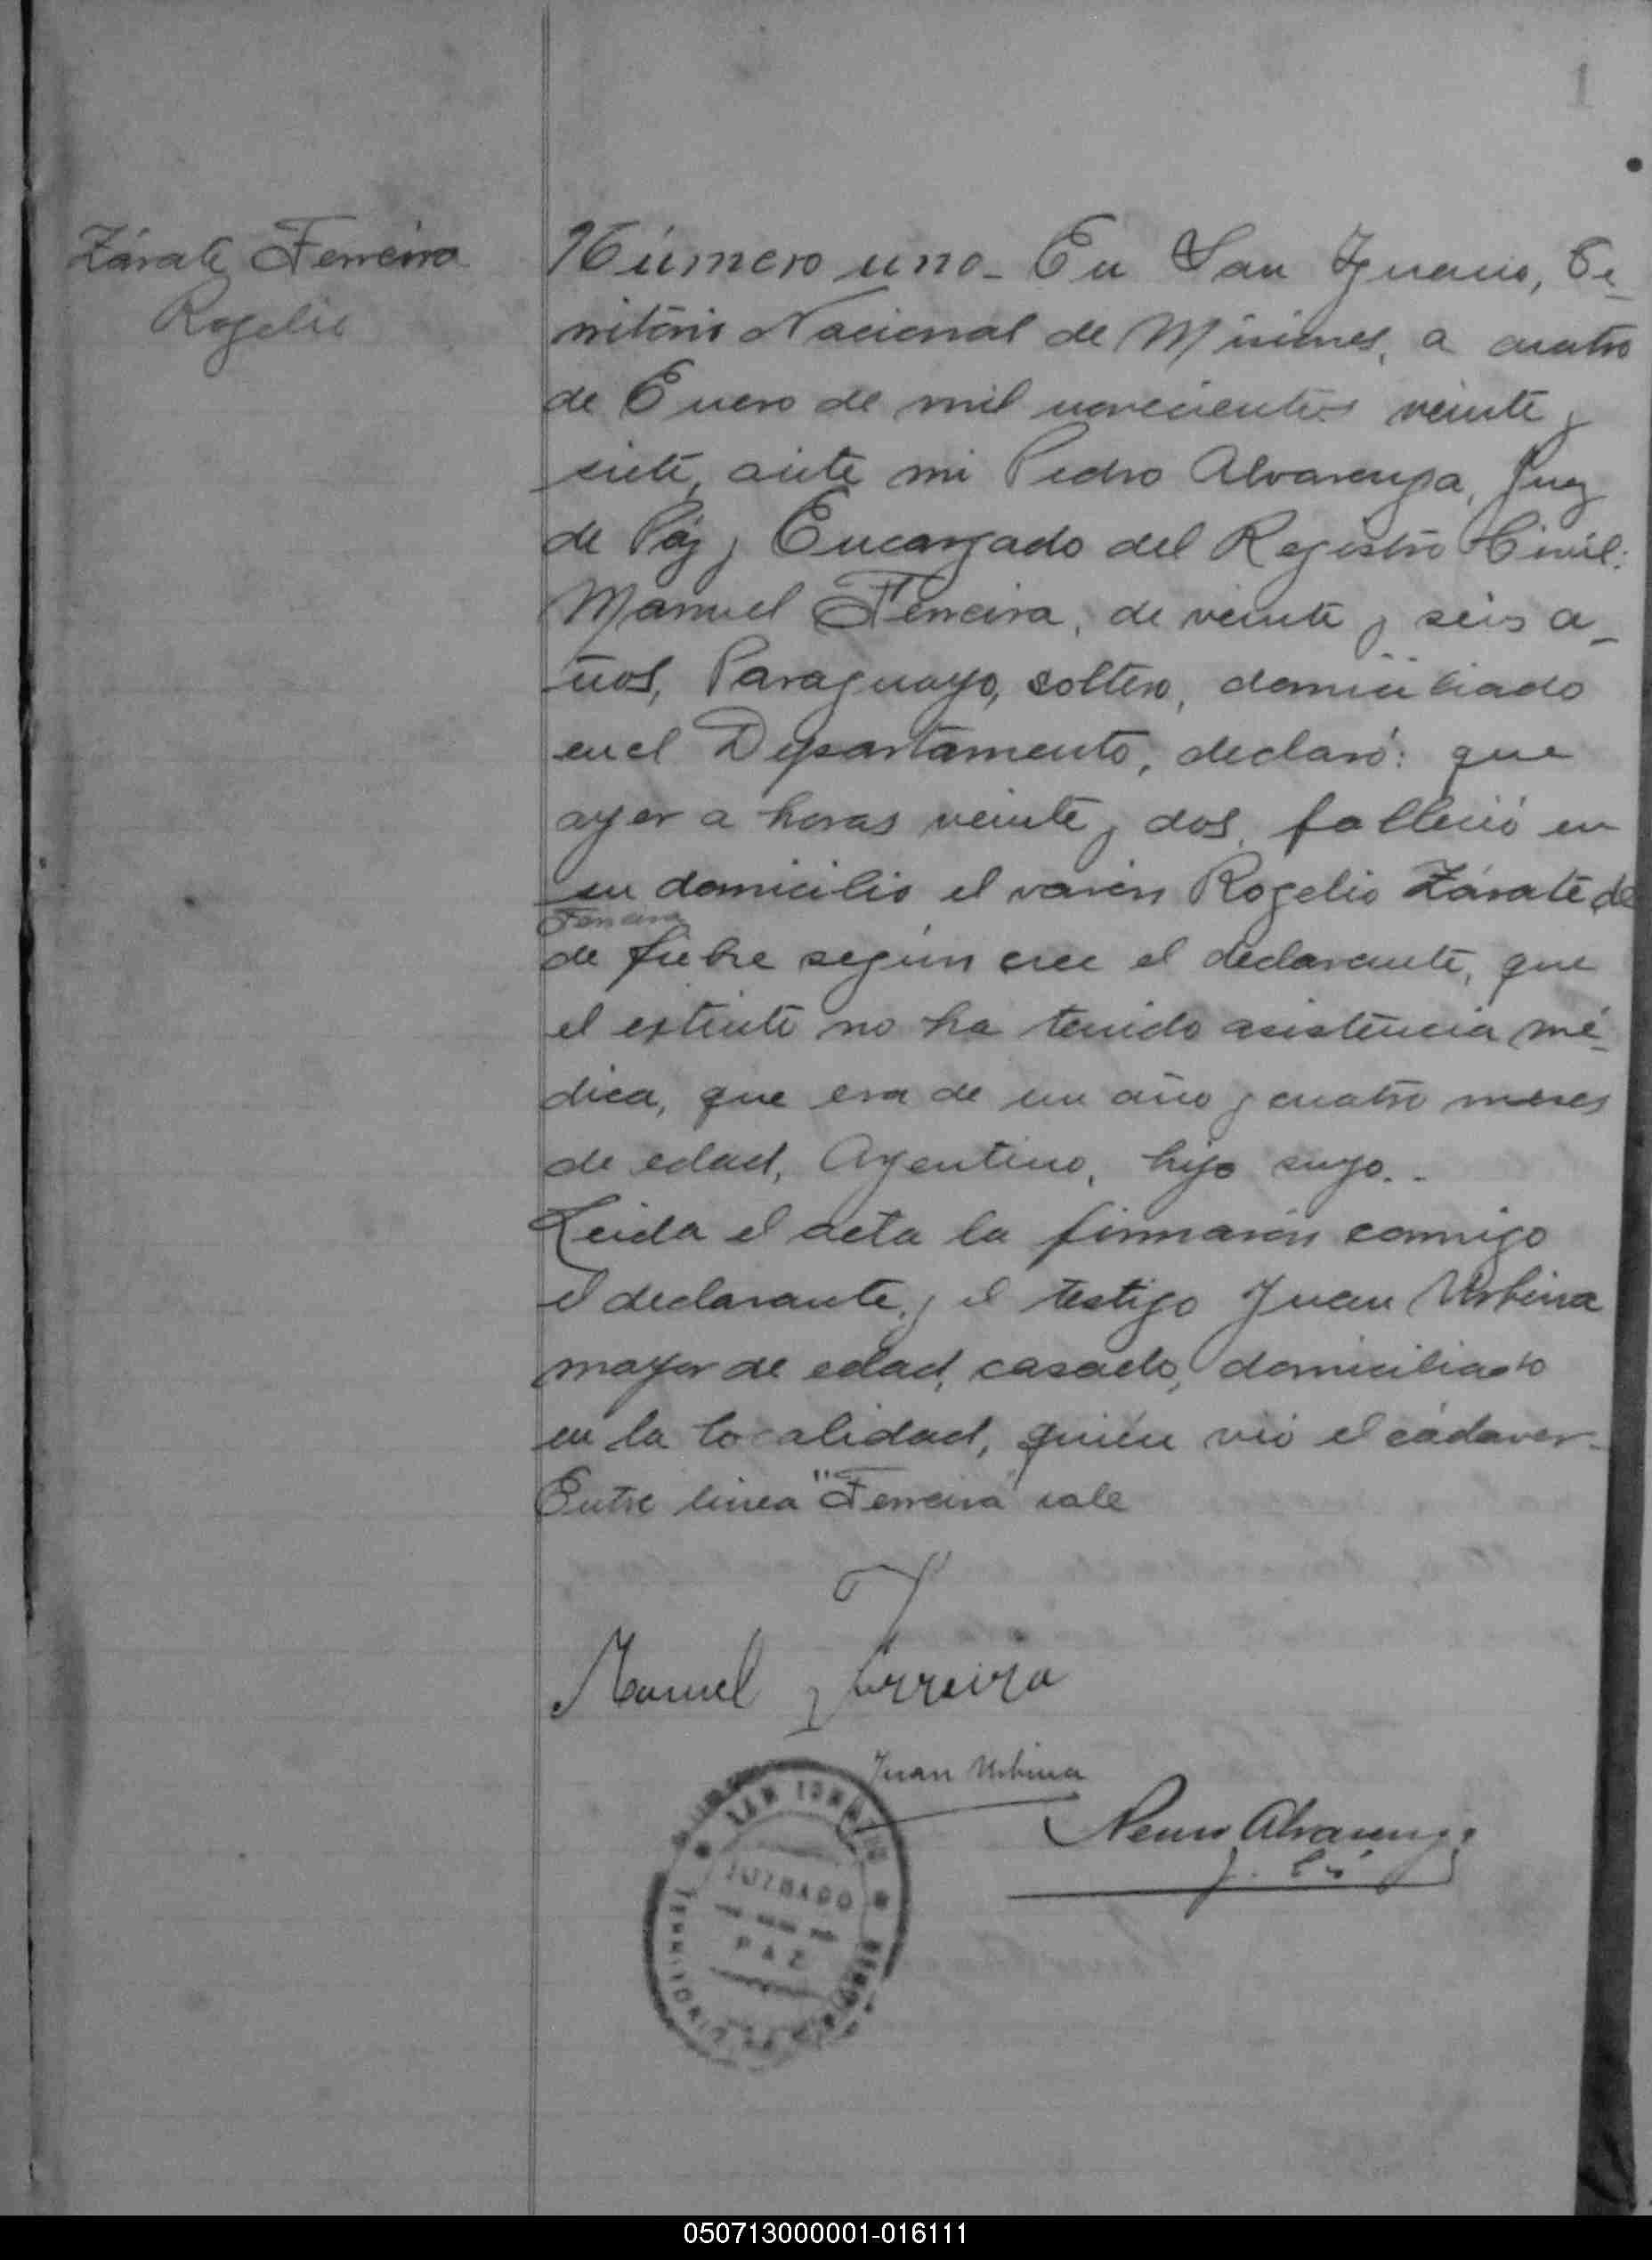 1
Zárate Ferreira
Rogelio
Número uno. En San Ignacio, Te-
rritorio Nacional de Misiones, a cuatro
de Enero de mil novecientos veinte y
siete, ante mi Pedro Alvarenga, Juez
de Páz y Encargado del Registro Civil:
Manuel Ferreira, de veinte y seis a-
ños, Paraguayo, soltero, domiciliado
en el Departamento, declaró: que
ayer a horas veinte y dos, falleció en
su domicilio el varón Rogelio Zárate de
Ferreira
de fiebre según cree el declarante, que
el extinto no ha tenido asistencia mé-
dica, que era de un año y cuatro meses
de edad, Argentino, hijo suyo..
Leida el acta la firmarón conmigo
el declarante y el testigo Juan Urbina
mayor de edad, casado, domiciliado
en la localidad, quién vió el cádaver-
Entre linea "Ferreira" vale
Manuel Ferreira
Juan Urbina
Alvarenga
SAN IGNACIO
JUZGADO
PAZ
TERRITORIO
050713000001-016111